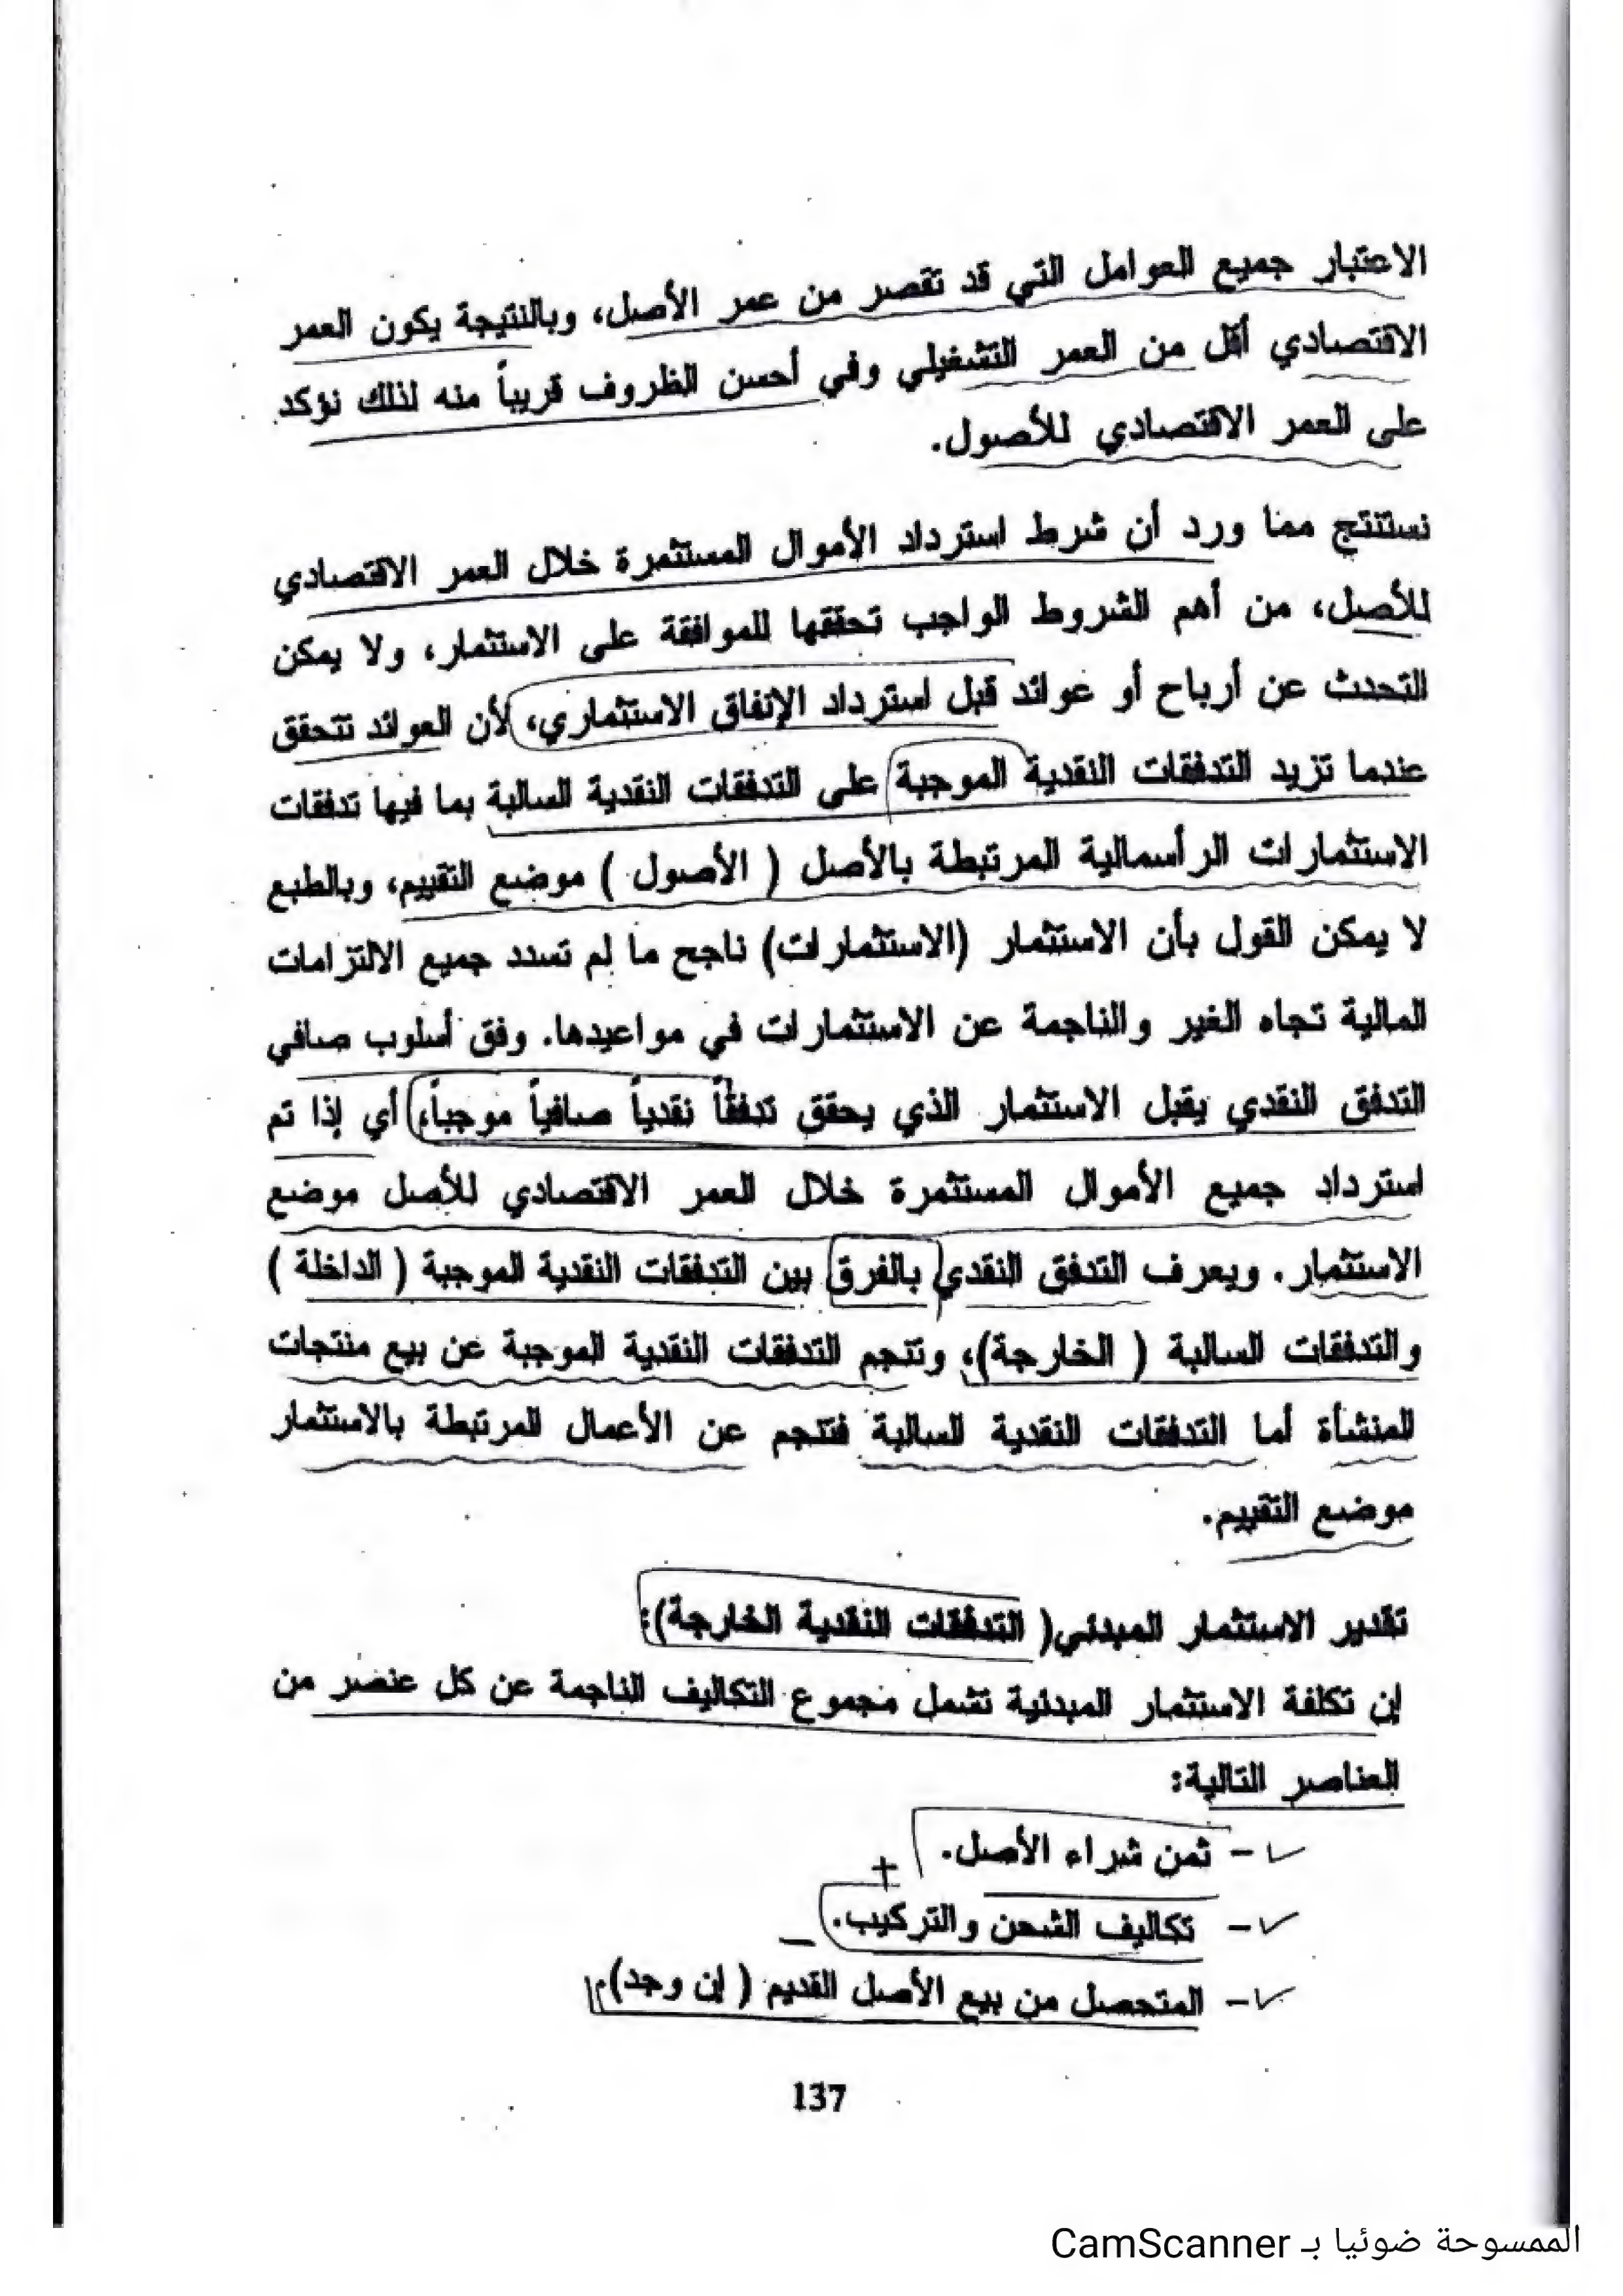 الاعتبار جميع العوامل التي قد تقصر من عمر الأصل، وبالنتيجة يكون العمر
الاقتصادي أقل من العمر التشغيلي وفي أحسن الظروف قريباً منه لذلك نؤكد
على العمر الاقتصادي للأصول.
نستنتج مما ورد أن شرط استرداد الأموال المستثمرة خلال العمر الاقتصادي
للأصل، من أهم الشروط الواجب تحققها للموافقة على الاستثمار، ولا يمكن
التحدث عن أرباح أو عوائد قبل استرداد الإنفاق الاستثماري، لأن العوائد تتحقق
عندما تزيد التدفقات النقدية الموجبة على التدفقات النقدية السالبة بما فيها تدفقات
الاستثمارات الرأسمالية المرتبطة بالأصل ( الأصول ) موضع التقييم، وبالطبع
لا يمكن القول بأن الاستثمار (الاستثمارات) ناجح ما لم تسدد جميع الالتزامات
المالية تجاه الغير والناجمة عن الاستثمارات في مواعيدها. وفق أسلوب صافي
التدفق النقدي يقبل الاستثمار الذي يحقق تدفقاً نقدياً صافياً موجباً، أي إذا تم
استرداد جميع الأموال المستثمرة خلال العمر الاقتصادي للأصل موضع
الاستثمار. ويعرف التدفق النقدي بالفرق بين التدفقات النقدية الموجبة ( الداخلة )
والتدفقات السالبة ( الخارجة)، وتنجم التدفقات النقدية الموجبة عن بيع منتجات
المنشأة أما التدفقات النقدية السالبة فتنجم عن الأعمال المرتبطة بالاستثمار
موضع التقييم.
تقدير الاستثمار المبدئي( التدفقات النقدية الخارجة):
إن تكلفة الاستثمار المبدئية تشمل مجموع التكاليف الناجمة عن كل عنصر من
العناصر التالية:
- ثمن شراء الأصل.
+
- تكاليف الشحن والتركيب.
–
- المتحصل من بيع الأصل القديم ( إن وجد).
137
الممسوحة ضوئيا بـ CamScanner